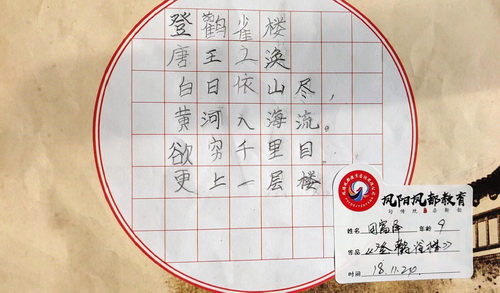 登鹳雀楼
唐 王之涣
白日依山尽,
黄河入海流。
欲穷千里目
更上一层楼
凤阳凤都教育
姓名 年龄 9
作品 《登鹳雀楼》
时间 18.11.20